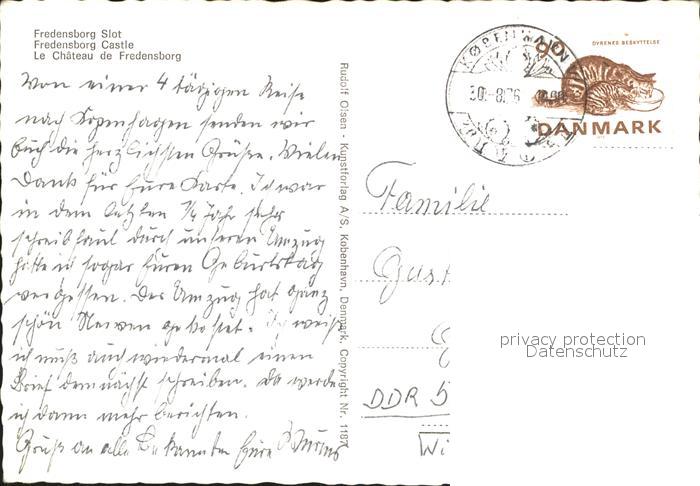 Fredensborg Slot
Fredensborg Castle
Le Château de Fredensborg
Von einer 4 tätzigen Reise
nach Kopenhagen senden wir
Euch die herzlichsten Grüße. Vielen
Dank für Eure Karte. Ich war
in dem letzten 1/4 Jahr sehr
schreibfaul durch unseren Umzug
hätte ich sogar Euren Geburtstag
vergessen. Der Umzug hat ganz
schön Nerven gekostet. Ich weiß
ich muß auch wiedermal einen
Brief demnächst schreiben. Da werde
ich dann mehr berichten.
Gruß an alle Bekannten Eure
Rudolf Olsen - Kunstforlag A/S, København, Denmark, Copyright Nr. 1187
KØBENHAVN
30.-8.76
90
DYRENES BESKYTTELSE
DANMARK
Familie
Gust
DDR 5
Wi
privacy protection
Datenschutz